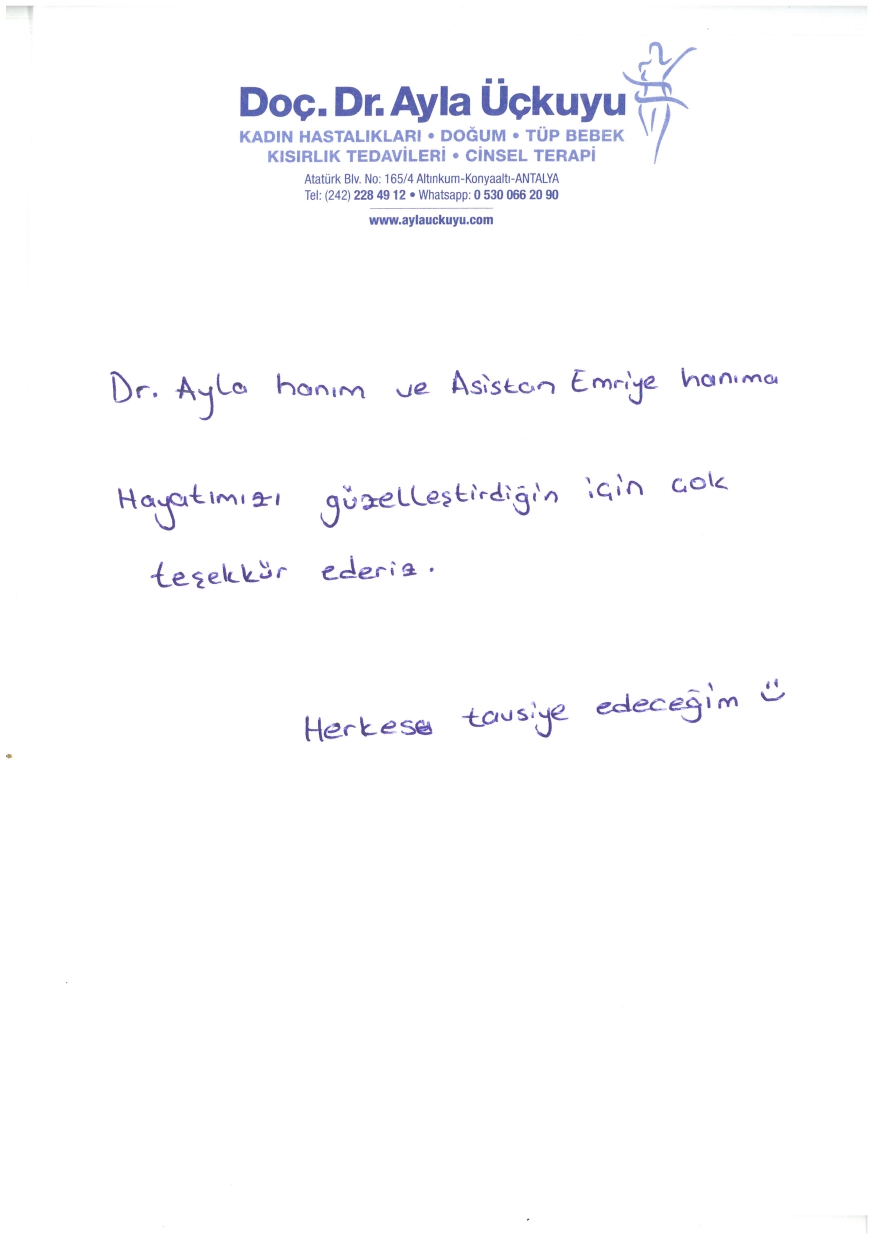 Doç. Dr. Ayla Üçkuyu
KADIN HASTALIKLARI • DOĞUM • TÜP BEBEK
KISIRLIK TEDAVİLERİ • CİNSEL TERAPİ
Atatürk Blv. No: 165/4 Altınkum-Konyaaltı-ANTALYA
Tel: (242) 228 49 12 • Whatsapp: 0 530 066 20 90
www.aylauckuyu.com
Dr. Ayla hanım ve Asistan Emriye hanıma
Hayatımızı güzelleştirdiğin için çok
teşekkür ederiz.
Herkese tavsiye edeceğim :)